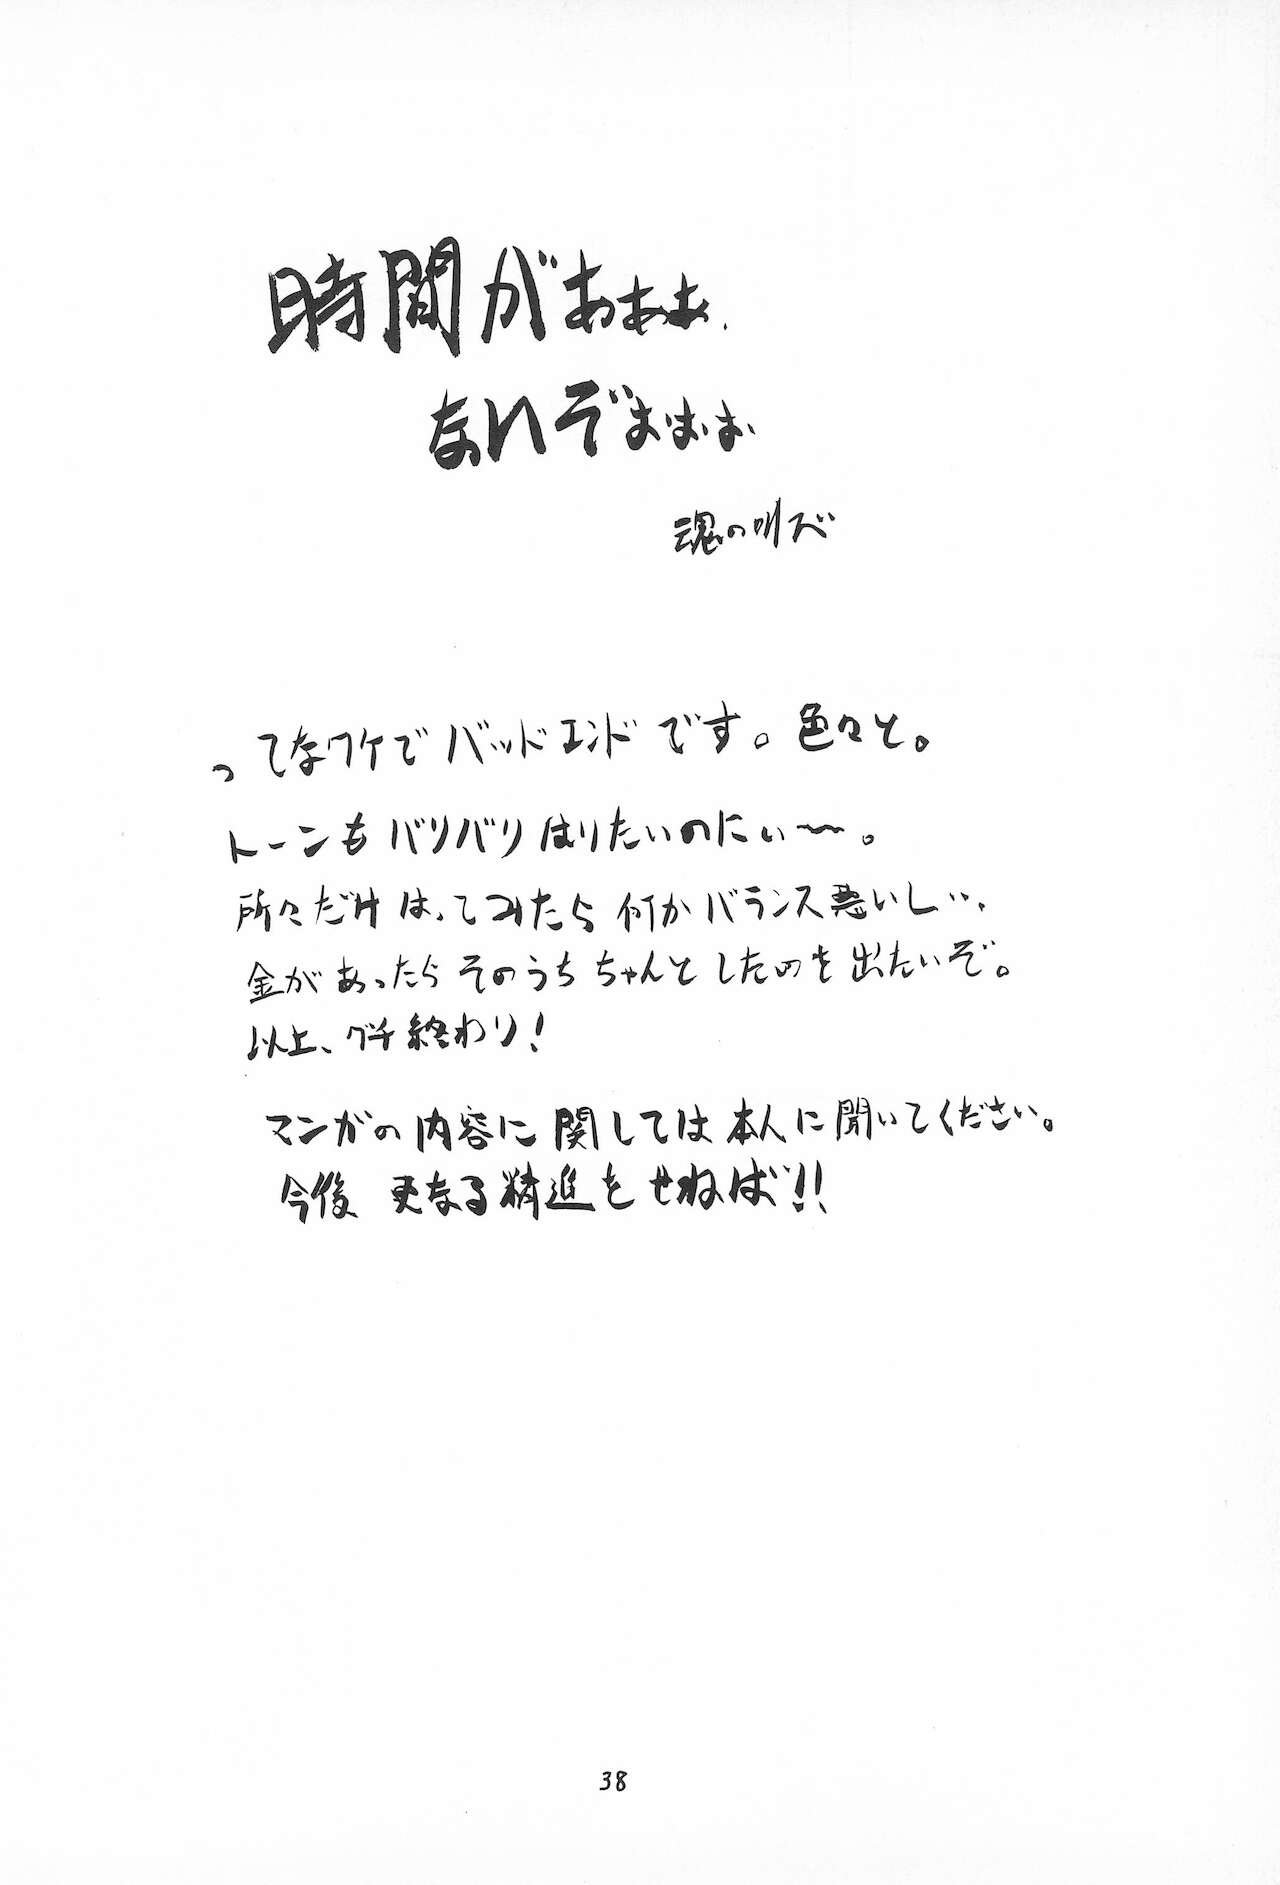 時間がぁぁぁ、
ないぞぉぉぉ
魂の叫び
ってなワケでバッドエンドです。色々と。
トーンもバリバリはりたいのにぃ〜。
所々だけはってみたら何かバランス悪いし…、
金があったらそのうちちゃんとしたのを出たいぞ。
以上、グチ終わり!
マンガの内容に関しては本人に聞いてください。
今後更なる精進をせねば!!
38